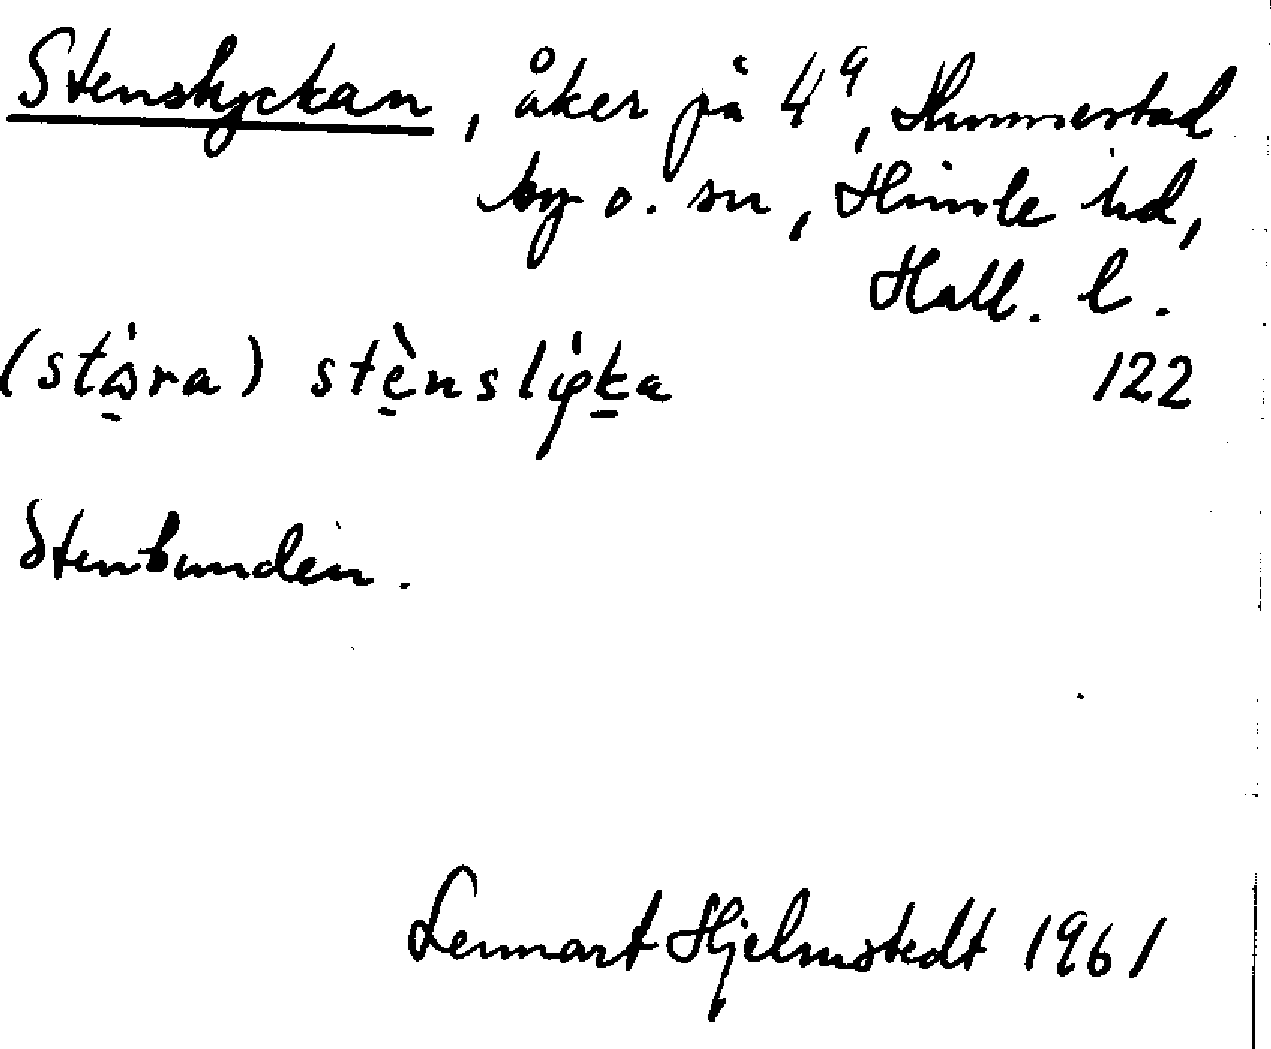 Stenslyckan, åker på 4⁹, Hunnestad
by o. sn, Himle hd,
Hall. l.
(stòra) stènslyka 122
Stenbunden.
Lennart Hjelmstedt 1961